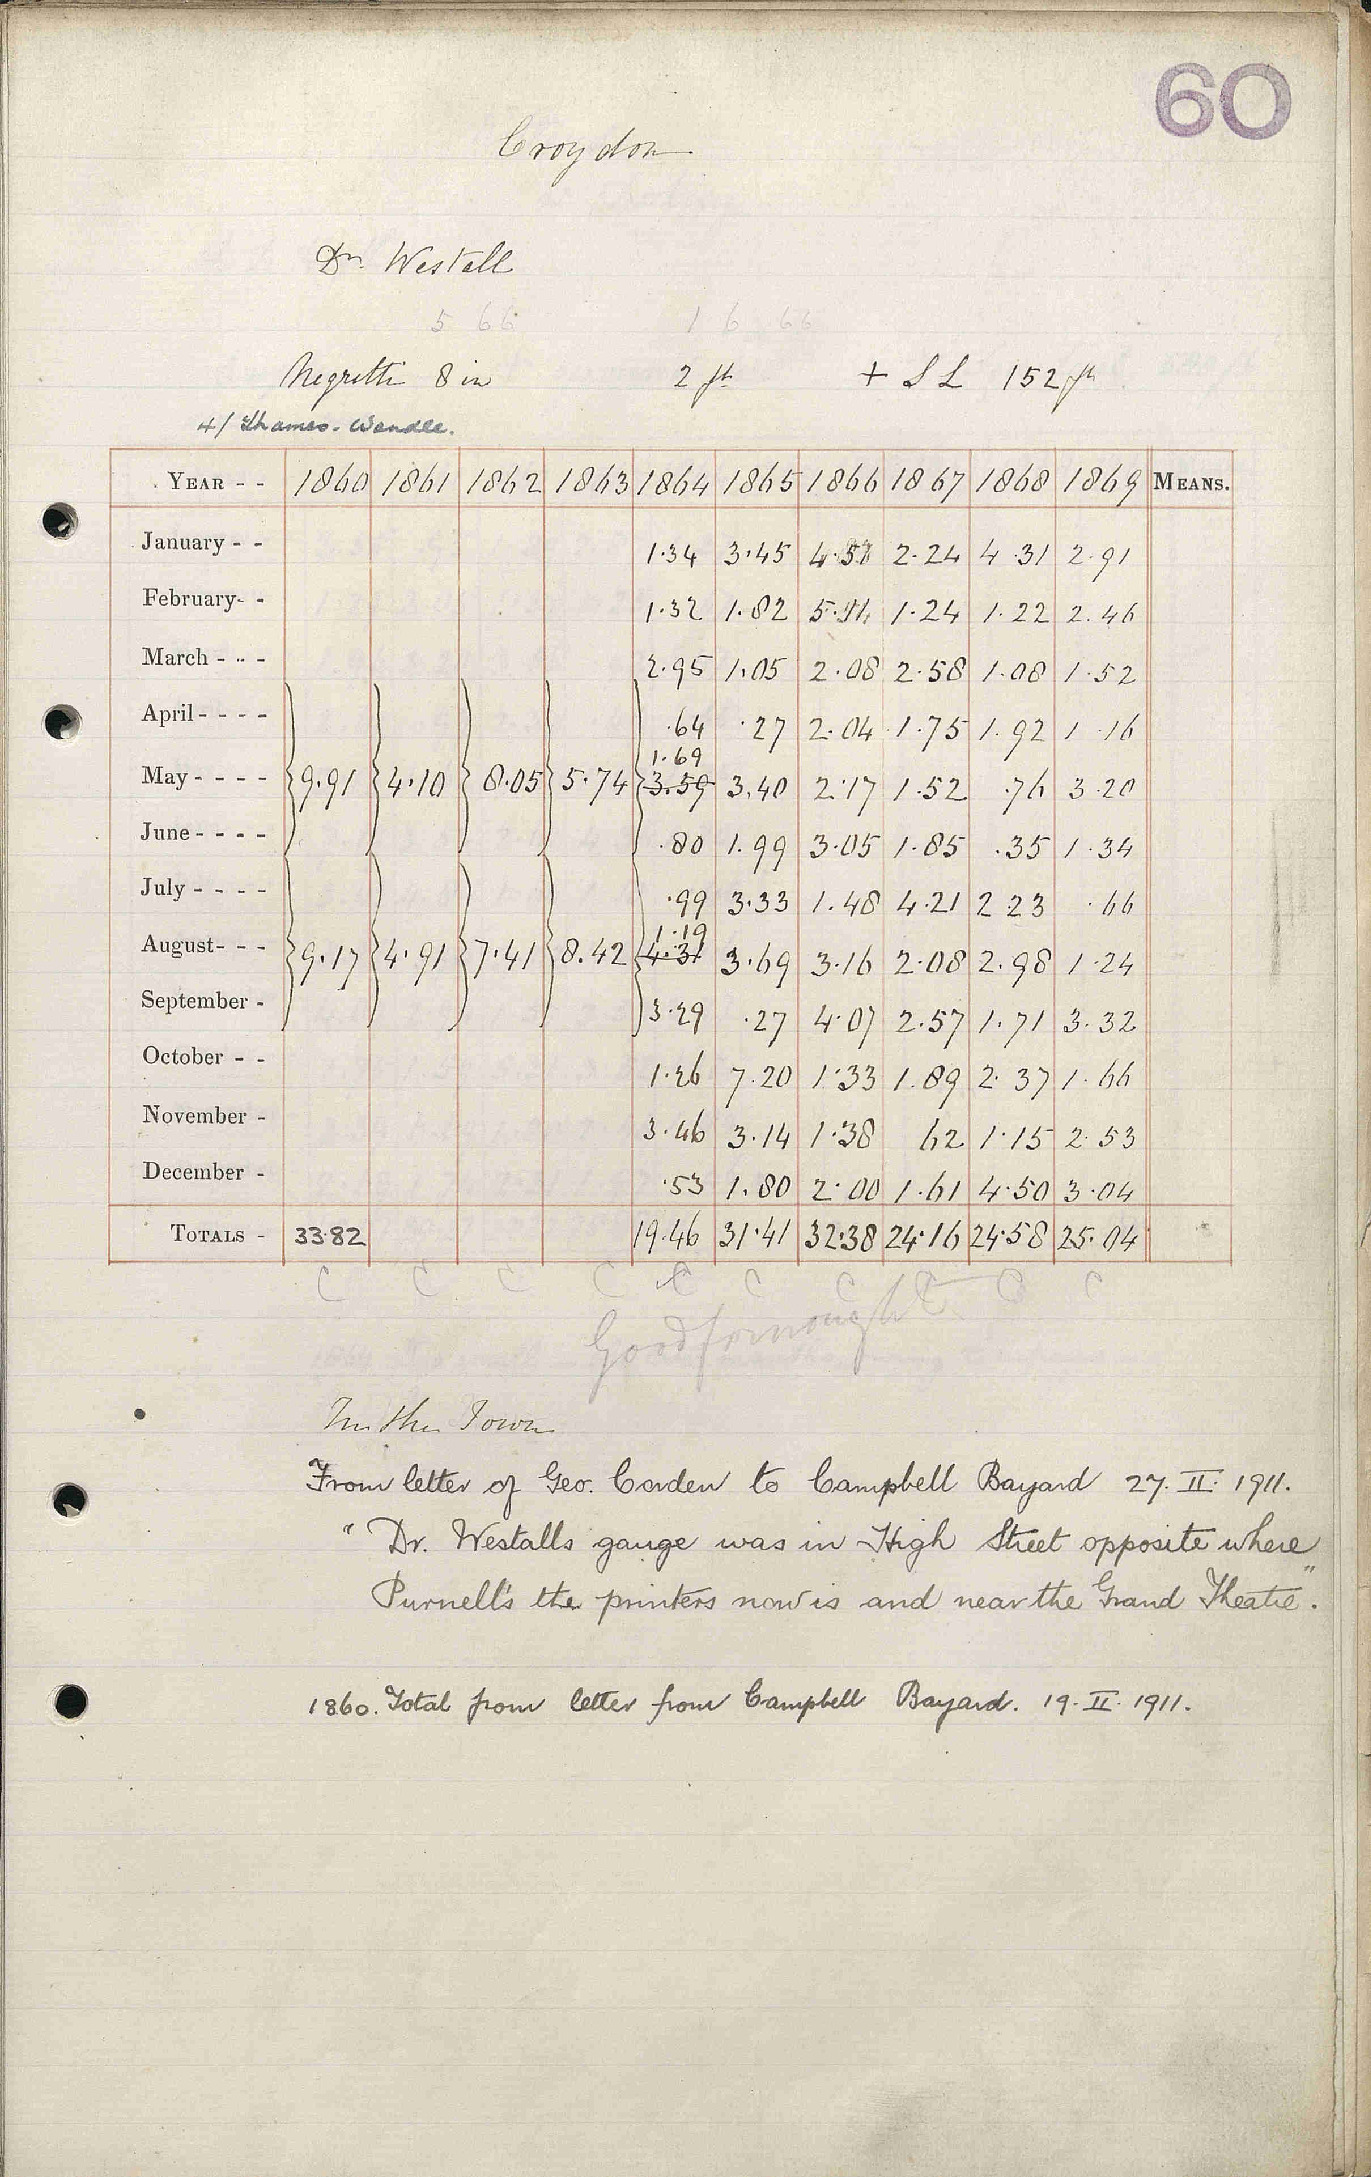 60
Croydon
Dr. Westall
5 66 1 6 66
Negretti 8 in 2 ft + S L 152 ft
4/ Thames - Wandle.
YEAR - - 1860 1861 1862 1863 1864 1865 1866 1867 1868 1869 MEANS.
January - - 1.34 3.45 2.24 4.31 2.91
February - - 1.32 1.82 1.24 1.22 2.46
March - - - 2.95 1.05 2.08 2.58 1.08 1.52
April - - - - .64 .27 2.04 1.75 1.92 1.16
1.69
May - - - - 9.91 4.10 8.05 5.74 3.59 3.40 2.17 1.52 .76 3.20
June - - - - .80 1.99 3.05 1.85 .35 1.34
July - - - - .99 3.33 1.48 4.21 2.23 .66
1.19
August - - - 9.17 4.91 7.41 8.42 4.31 3.69 3.16 2.08 2.98 1.24
September - 3.29 .27 4.07 2.57 1.71 3.32
October - - 1.26 7.20 1.33 1.89 2.37 1.66
November - 3.46 3.14 1.38 62 1.15 2.53
December - .53 1.80 2.00 1.61 4.50 3.04
TOTALS - 33.82 19.46 31.41 32.38 24.16 24.58 25.04
C C C C C C C C C C
In the Town
From letter of Geo. Corden to Campbell Bayard 27. II. 1911.
" Dr. Westalls gauge was in High Street opposite where
Purnell's the printers now is and near the Grand Theatre".
1860. Total from letter from Campbell Bayard. 19. II. 1911.